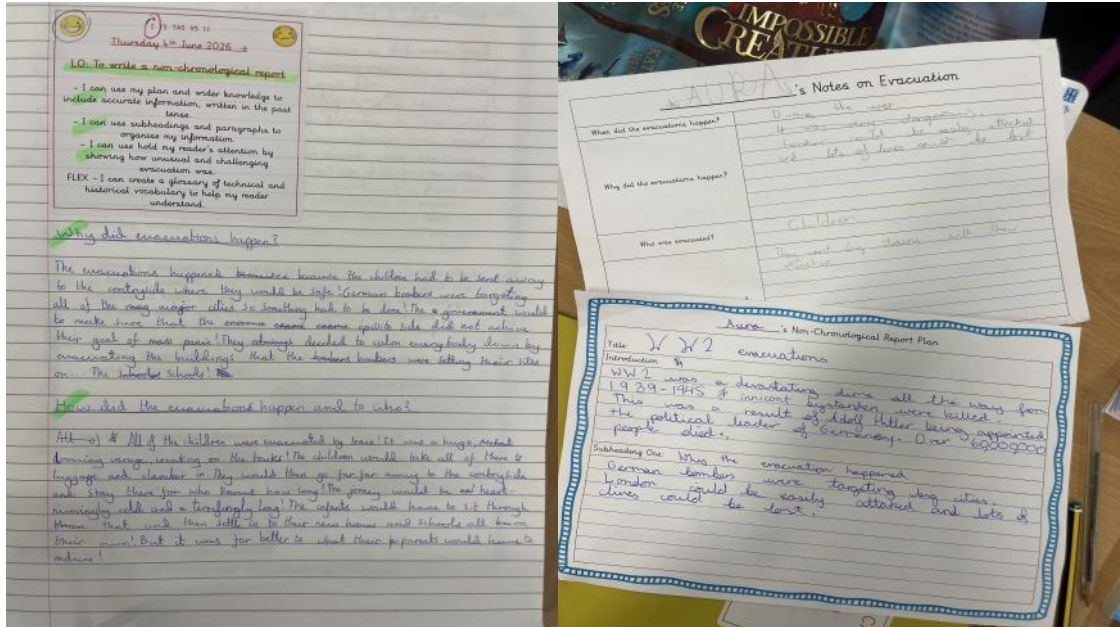 I TAG VS
Thursday 4th June 2026
LO: To write a non-chronological report
- I can use my plan and wider knowledge to
include accurate information, written in the past
tense.
- I can use subheadings and paragraphs to
organise my information.
- I can use hold my reader's attention by
showing how unusual and challenging
evacuation was.
FLEX - I can create a glossary of technical and
historical vocabulary to help my reader
understand.
Why did evacuations happen?
The evacuations happened because the children had to be sent away
to the contryside where they would be safe! German bombers were targeting
all of the major cities so something had to be done! The government would
to make sure that the oposite side did not achive
their goal of mass panic! They decided to calm everybody down by
evacuating the buildings that the bombers were setting their sites
on... The schools!
How did the evacuations happen and to who?
All of the children were evacuated by train! It was a huge,
looming on the tracks! The children would take all of there
luggage and clamber in. They would then go far far away to the contryside
and stay there for who knows how long! The jorney would be
cold and terrifingly long! The infants would have to sit through
that and then settle in to their new homes and schools all on
their own! But it was far better to what their parents would have to
endure!
IMPOSSIBLE
CREATU
AURA's Notes on Evacuation
When did the evacuations happen?
During the war
Why did the evacuations happen?
It was very dangerous.
London could be easily attacked
and lots of lives could be lost
Who was evacuated?
Children
They went by train with their
teacher
Aura's Non-Chronological Report Plan
Title: WW2 evacuations
Introduction
WW2 was a devastating time all the way from
1939-1945 innicont bystanders were killed.
This was a result of Adolf Hitler being appointed
the political leader of Germany. Over 60,000,000
people died.
Subheading One: Why the evacuation happened
German bombers were targeting big cities.
London could be easily attacked and lots of
lives could be lost.